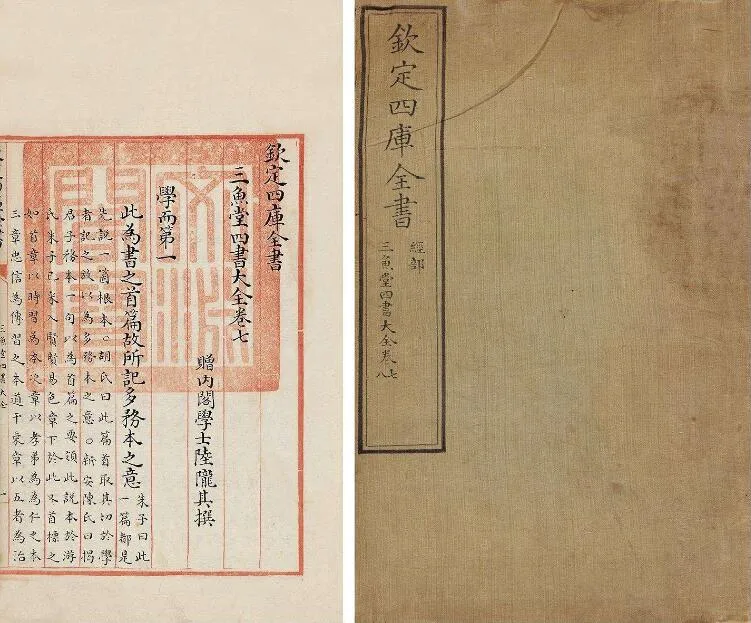 欽定四庫全書
三魚堂四書大全卷七
贈内閣學士陸隴其撰
學而第一
此為書之首篇故所記多務本之意
朱子曰此
一篇都是
先說一箇根本。胡氏曰此篇首取其切於學
者記之故以為多務本之意。新安陳氏曰揭
君子務本一句以為首篇之要領此說本於游
氏朱子已采入賢賢易色章下於此又首標之
如首章以時習為本次章以孝弟為為仁之本
三章忠信為傳習之本道千乘章以五者為治
三魚堂四書大全
文淵閣寶
欽定四庫全書
經部
三魚堂四書大全卷七八